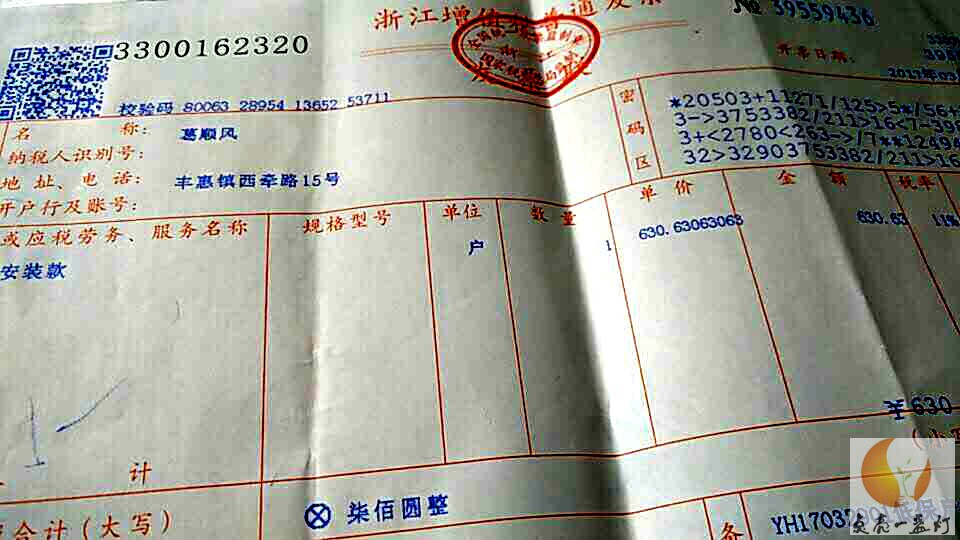 浙江增值税普通发票
№ 39559436
3300162320
开票日期:
校验码 80063 28954 13652 53711
名 称: 葛顺风
纳税人识别号:
地 址、电 话: 丰惠镇西牵路15号
开户行及账号:
密码区
*20503+11271/125>5*/56+
3->3753382/211>16<7-596
3+<2780<263->/7**12494
32>32903753382/211>16
或应税劳务、服务名称 规格型号 单位 数量 单价 金额 税率
安装款 户 1 630.63063063 630.63 11%
¥630
计
合计(大写) ⊗柒佰圆整
点亮一盏灯